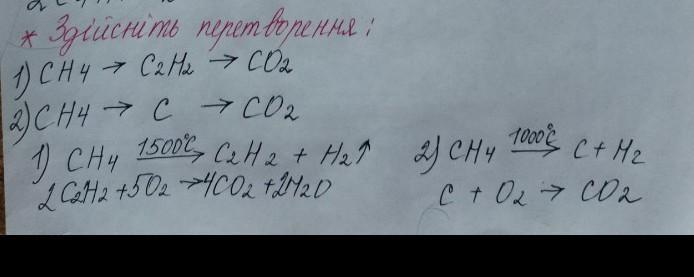 * Здійсніть перетворення:
1) CH4 → C2H2 → CO2
2) CH4 → C → CO2
1) CH4 1500°C→ C2H2 + H2↑
2C2H2 + 5O2 → 4CO2 + 2H2O
2) CH4 1000°C→ C + H2
C + O2 → CO2